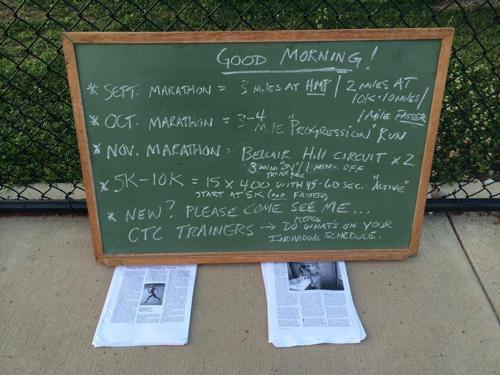 GOOD MORNING!
* SEPT. MARATHON = 3 MILES AT HMP / 2 MILES AT
10K-10 MILES /
1 MILE FASTER
* OCT. MARATHON = 3-4 MILE "PROGRESSION" RUN
* NOV. MARATHON = BELLAIR HILL CIRCUIT x 2
3 MIN "ON" / 1 MIN - OFF
5K-10K PACE
* 5K-10K = 15 x 400 WITH 45-60 SEC. "ACTIVE"
START AT 5K (NO FASTER)
* NEW? PLEASE COME SEE ME...
CTC TRAINERS → PLEASE DO WHAT'S ON YOUR
INDIVIDUAL SCHEDULE.